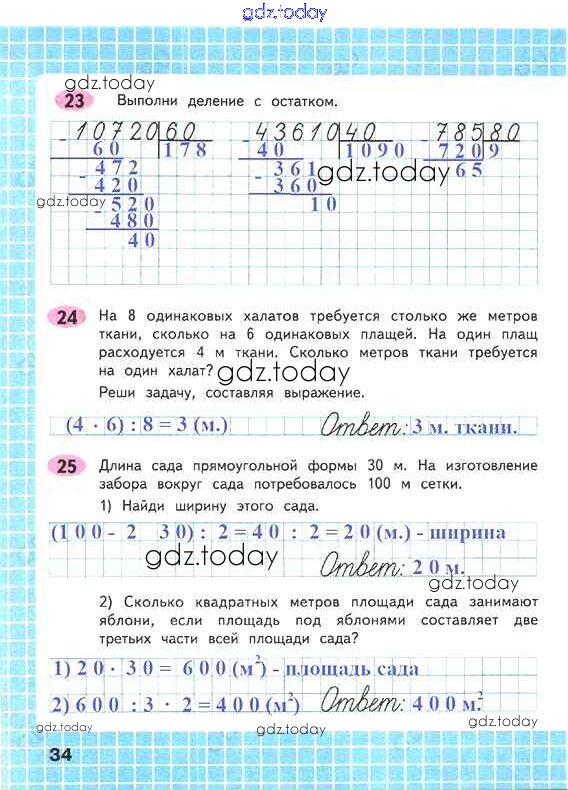 gdz.today
gdz.today
23 Выполни деление с остатком.
- 10720 60 - 43610 40 - 785 80
60 178 40 1090 720 9
- 472 - 361 65
gdz.today
- 420 360
gdz.today
- 520 10
480
40
24 На 8 одинаковых халатов требуется столько же метров
ткани, сколько на 6 одинаковых плащей. На один плащ
расходуется 4 м ткани. Сколько метров ткани требуется
на один халат?
gdz.today
Реши задачу, составляя выражение.
(4 · 6) : 8 = 3 (м.) Ответ: 3 м. ткани.
25 Длина сада прямоугольной формы 30 м. На изготовление
забора вокруг сада потребовалось 100 м сетки.
1) Найди ширину этого сада.
(100 - 2 30) : 2 = 40 : 2 = 20 (м.) - ширина
gdz.today
Ответ: 20 м.
gdz.today
2) Сколько квадратных метров площади сада занимают
яблони, если площадь под яблонями составляет две
третьих части всей площади сада?
1) 20 · 30 = 600 (м²) - площадь сада
2) 600 : 3 · 2 = 400 (м²) Ответ: 400 м.²
gdz.today
gdz.today
gdz.today
34